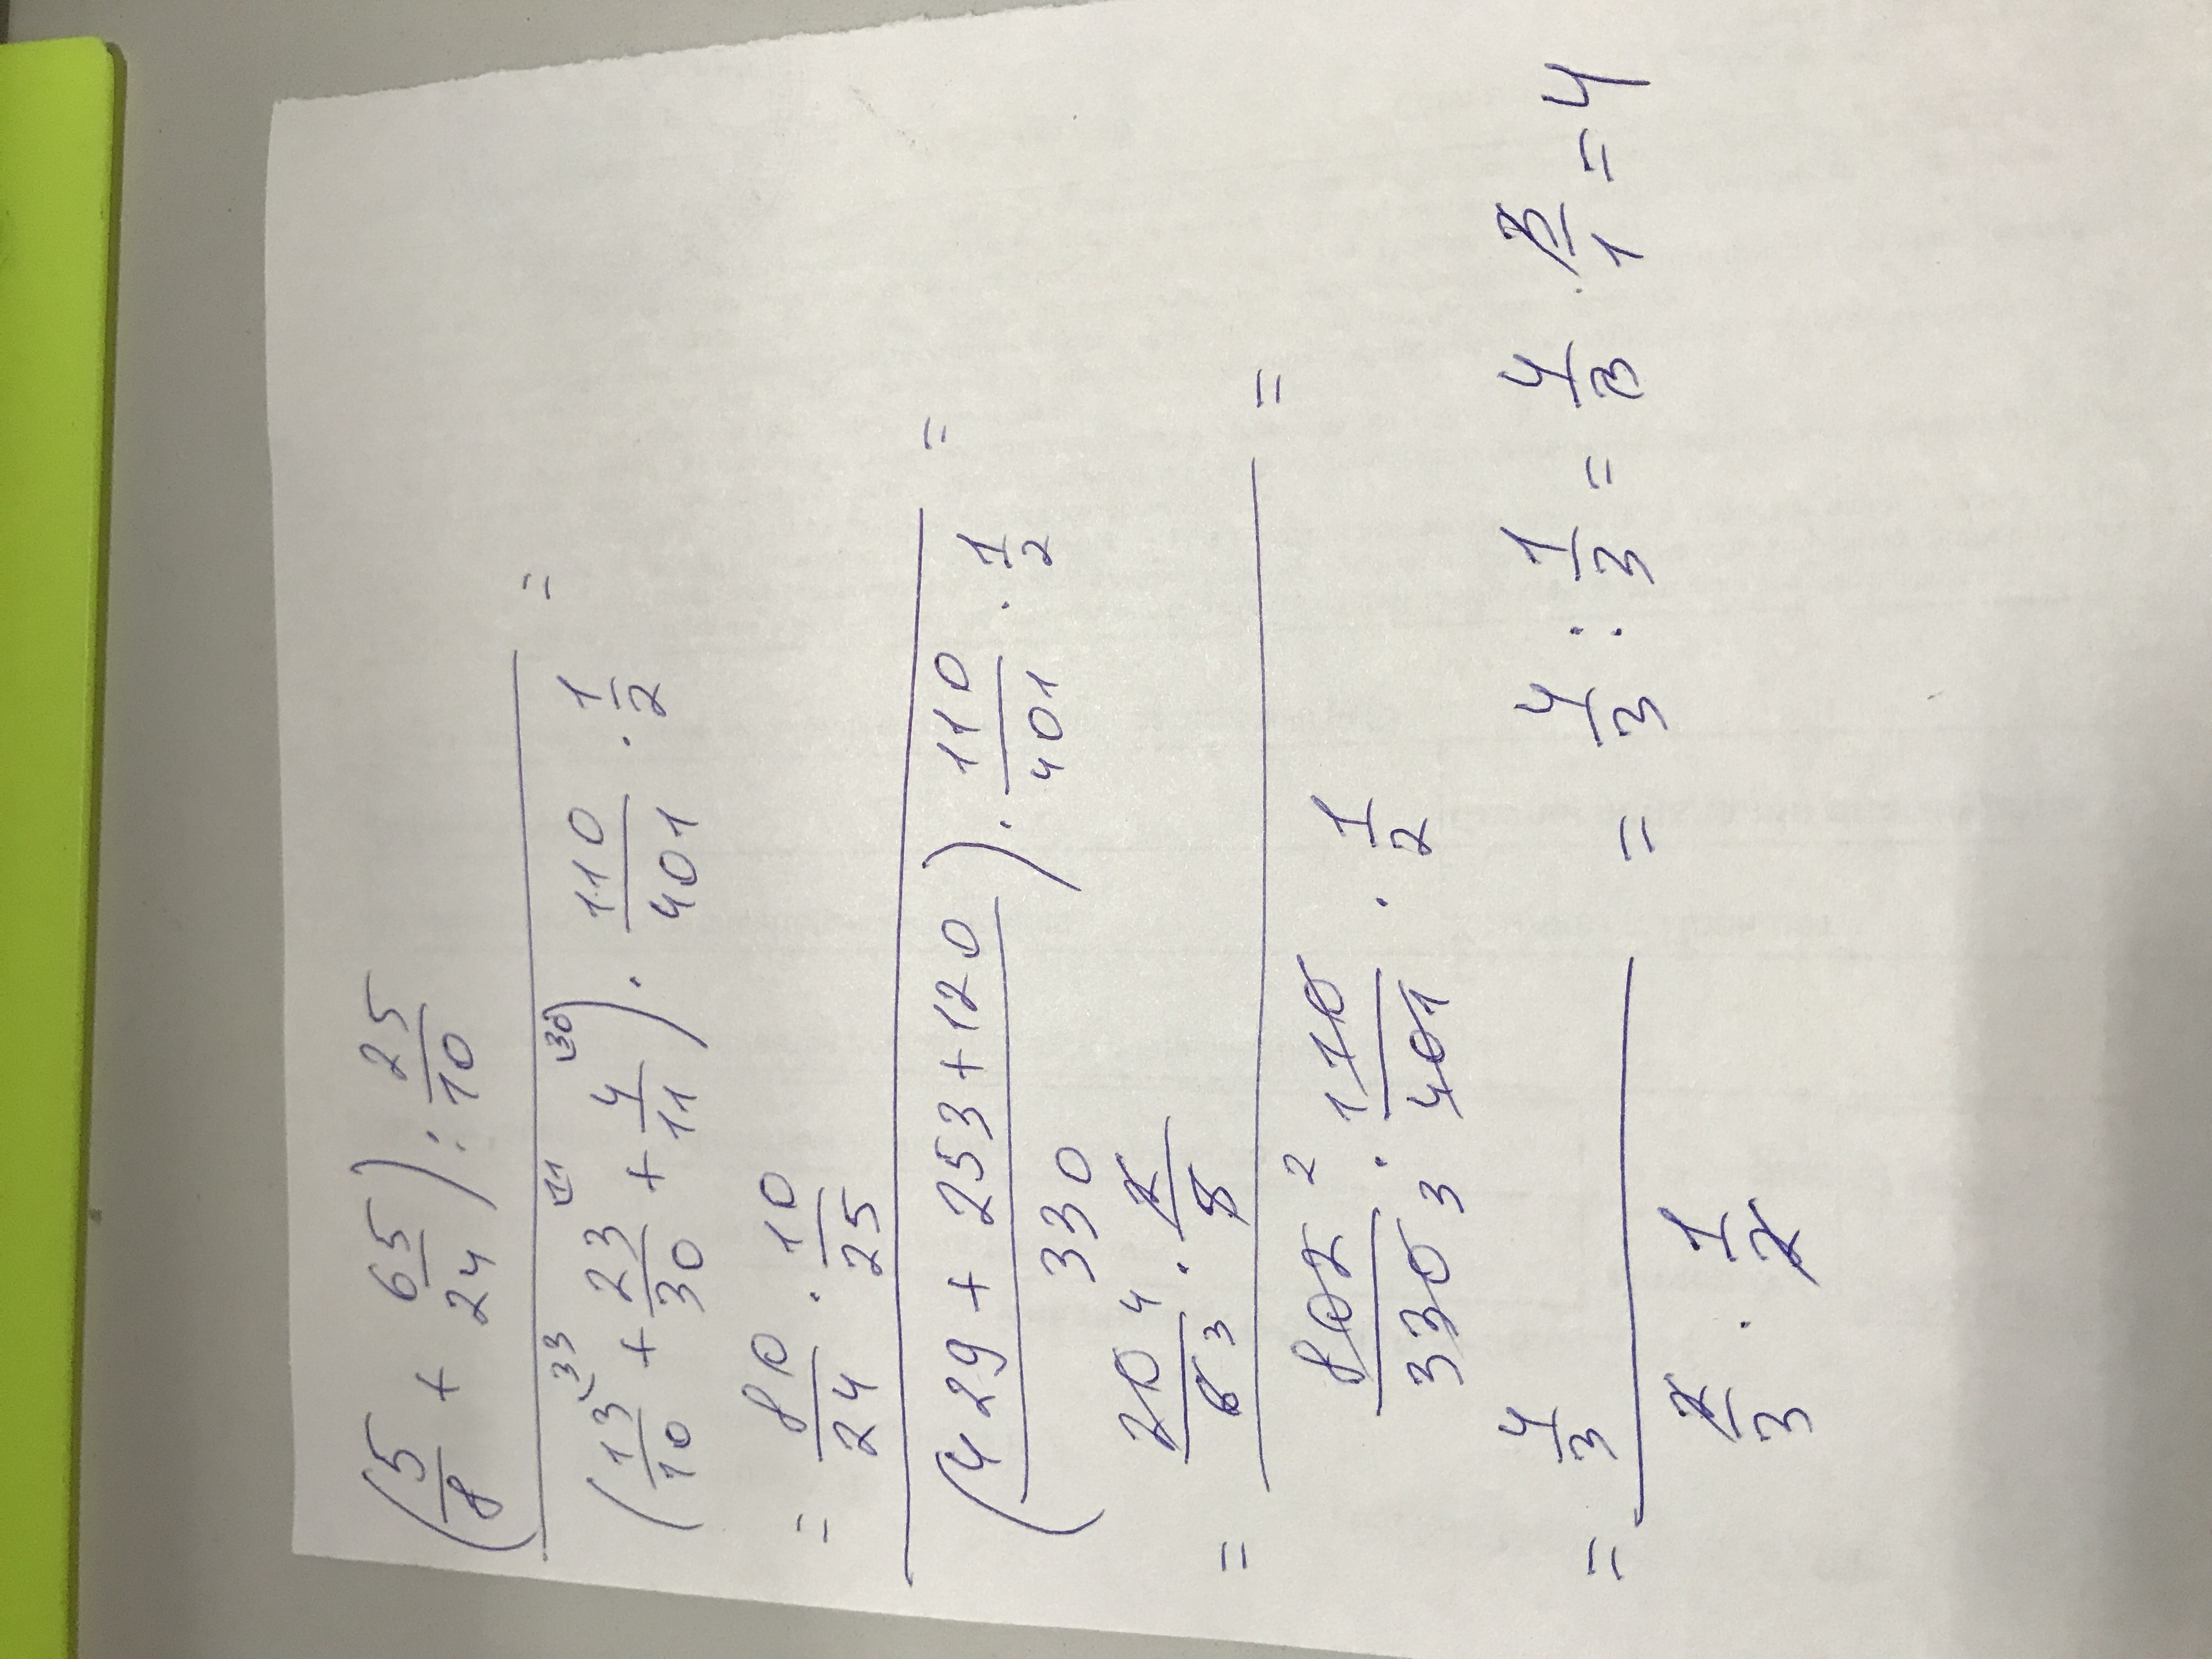 (5/8 + 65/24) : 25/10
(13/10 \33 + 23/30 \11 + 4/11 \30) · 110/401 · 1/2 =
= 80/24 · 10/25
(429 + 253 + 120 / 330) · 110/401 · 1/2 =
= 20/6 4 3 · 2/5
802/330 2 3 · 110/401 1 · 1/2 =
= 4/3
2/3 · 1/2 = 4/3 : 1/3 = 4/3 · 3/1 = 4